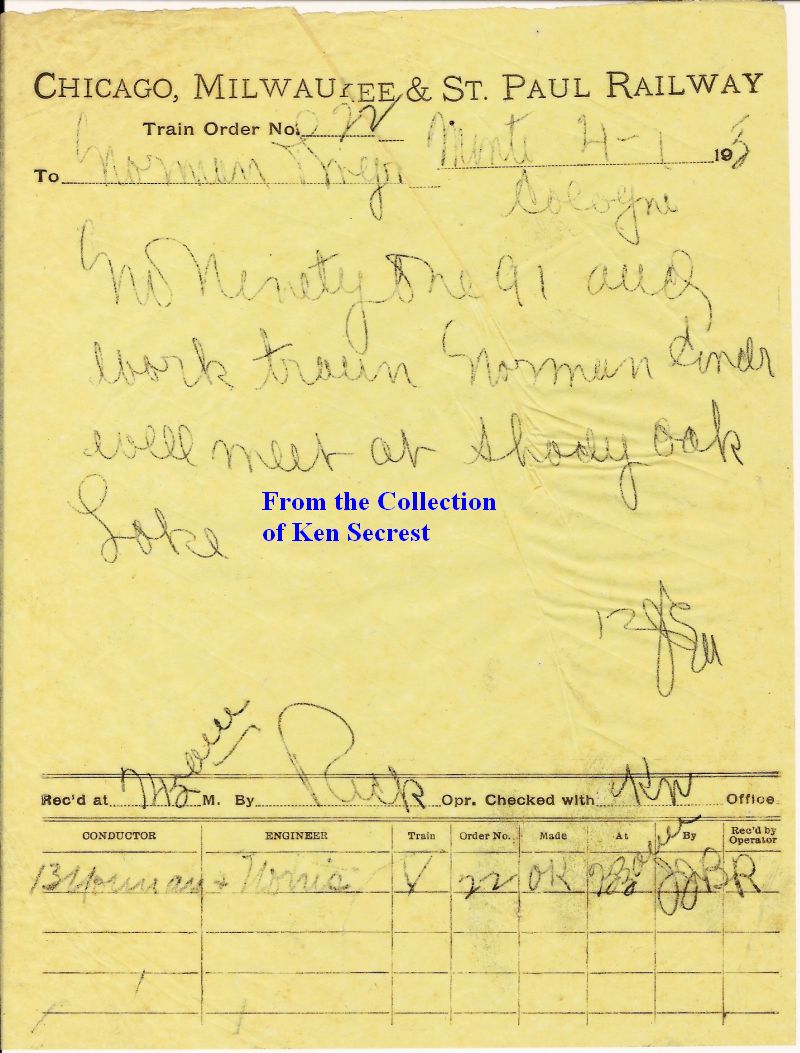 CHICAGO, MILWAUKEE & ST. PAUL RAILWAY
Train Order No. 22
To Norman Monte 4-1 193
Cologne
No Ninety one 91 and
work train Norman Condr
will meet at Shady Oak
Lake
From the Collection
of Ken Secrest
Rec'd at M. By Rick Opr. Checked with Kn Office
CONDUCTOR ENGINEER Train Order No. Made At By Rec'd by Operator
Norman + Norris 22 OK JJB R